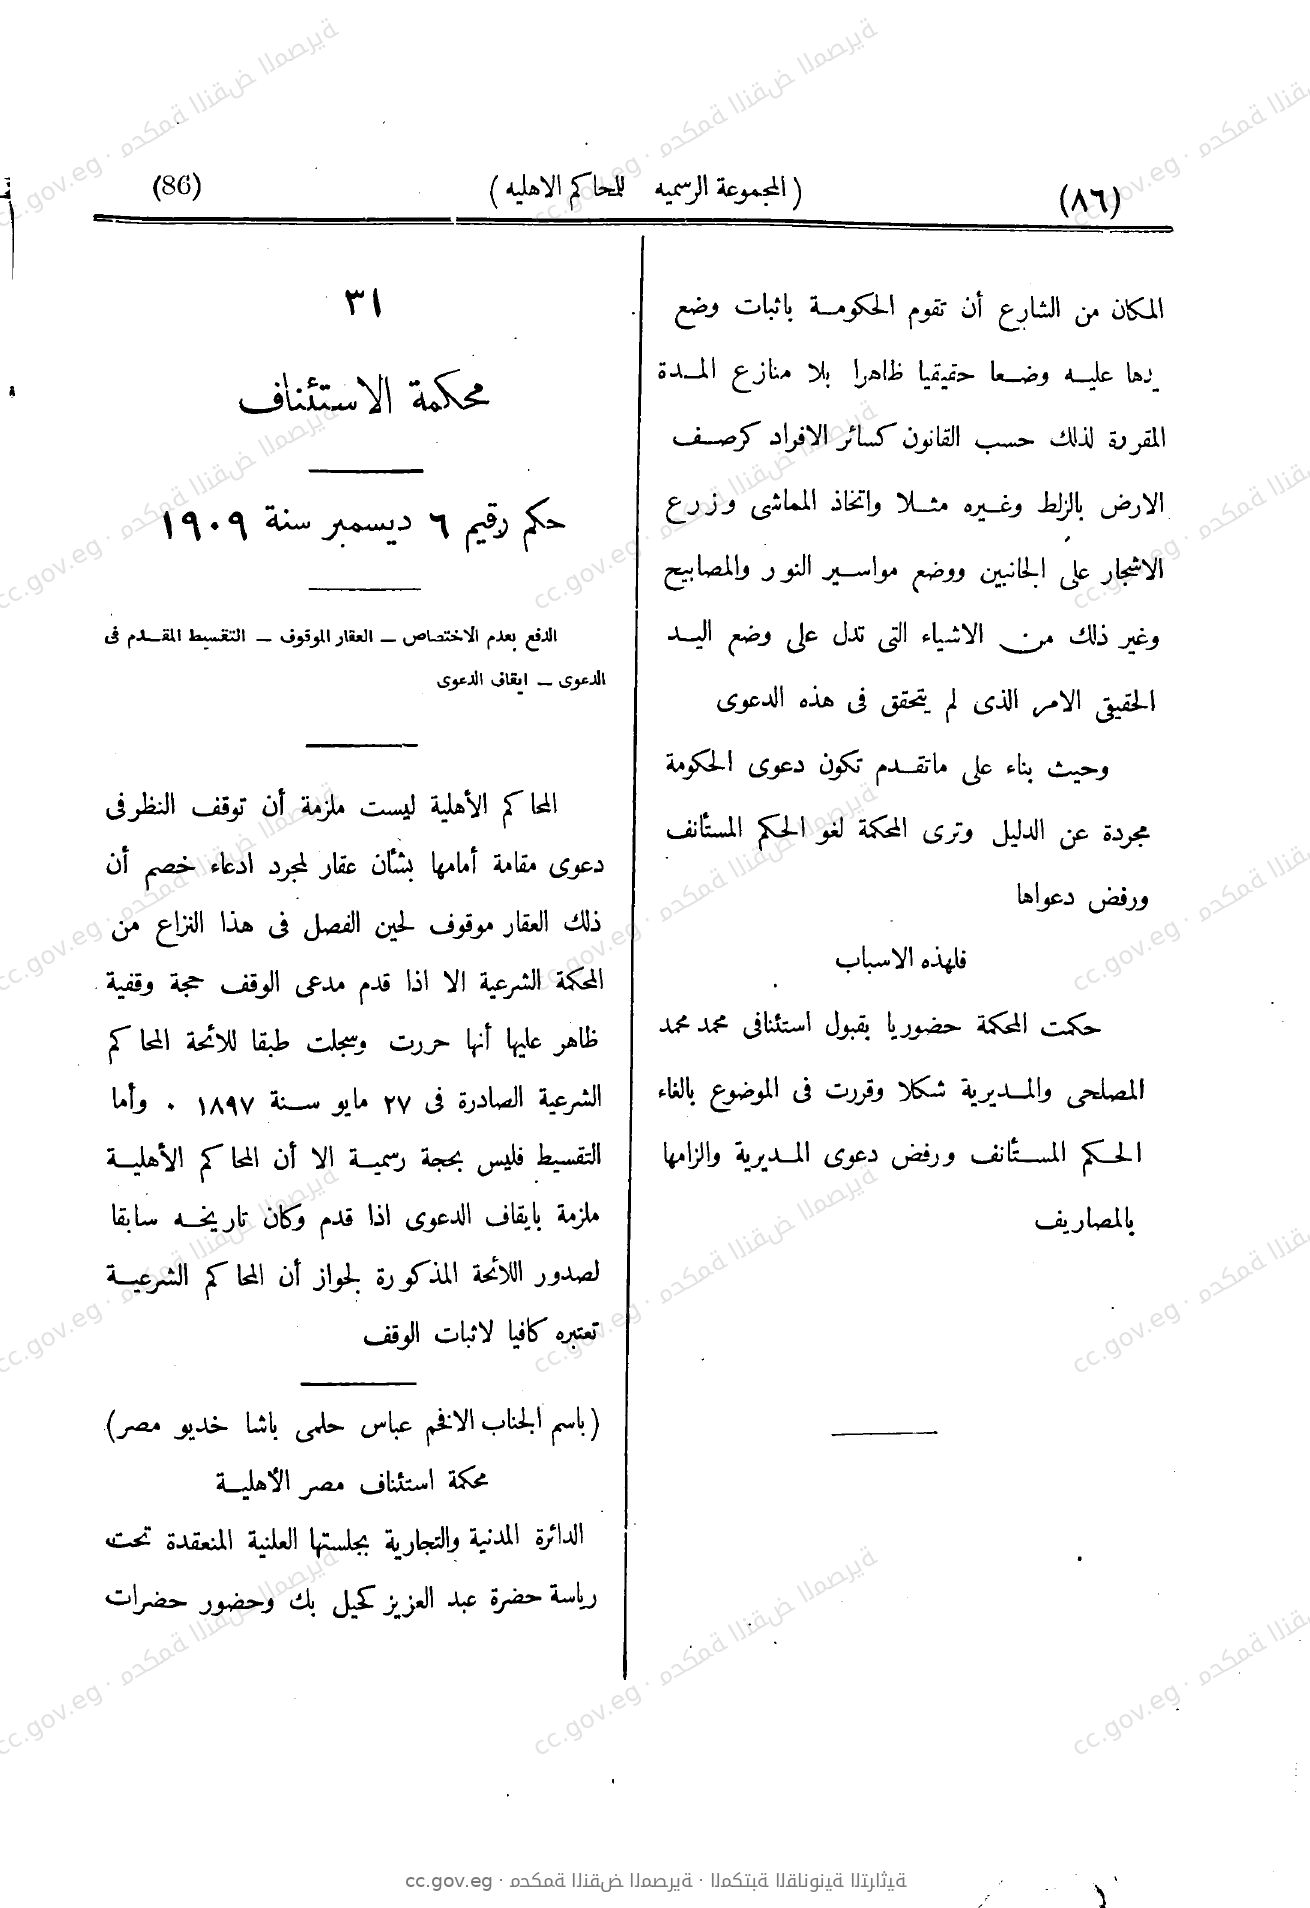 (٨٦) (المجموعة الرسميه للمحاكم الاهليه) (86)
المكان من الشارع أن تقوم الحكومة باثبات وضع
يدها عليه وضعا حقيقيا ظاهرا بلا منازع المدة
المقررة لذلك حسب القانون كسائر الافراد كرصف
الارض بالزلط وغيره مثلا واتخاذ المماشى وزرع
الاشجار على الجانبين ووضع مواسير النور والمصابيح
وغير ذلك من الاشياء التى تدل على وضع اليد
الحقيقى الامر الذى لم يتحقق فى هذه الدعوى
وحيث بناء على ماتقدم تكون دعوى الحكومة
مجردة عن الدليل وترى المحكمة لغو الحكم المستأنف
ورفض دعواها
فلهذه الاسباب
حكمت المحكمة حضوريا بقبول استئنافى محمد محمد
المصلحى والمديرية شكلا وقررت فى الموضوع بالغاء
الحكم المستأنف ورفض دعوى المديرية والزامها
بالمصاريف
٣١
محكمة الاستئناف
حكم رقيم ٦ ديسمبر سنة ١٩٠٩
الدفع بعدم الاختصاص – العقار الموقوف – التقسيط المقدم فى
الدعوى – ايقاف الدعوى
المحاكم الأهلية ليست ملزمة أن توقف النظر فى
دعوى مقامة أمامها بشأن عقار لمجرد ادعاء خصم أن
ذلك العقار موقوف لحين الفصل فى هذا النزاع من
المحكمة الشرعية الا اذا قدم مدعى الوقف حجة وقفية
ظاهر عليها أنها حررت وسجلت طبقا للائحة المحاكم
الشرعية الصادرة فى ٢٧ مايو سنة ١٨٩٧ . وأما
التقسيط فليس بحجة رسمية الا أن المحاكم الأهلية
ملزمة بايقاف الدعوى اذا قدم وكان تاريخه سابقا
لصدور اللائحة المذكورة لجواز أن المحاكم الشرعية
تعتبره كافيا لاثبات الوقف
(باسم الجناب الافخم عباس حلمى باشا خديو مصر)
محكمة استئناف مصر الأهلية
الدائرة المدنية والتجارية بجلستها العلنية المنعقدة تحت
رياسة حضرة عبد العزيز كحيل بك وحضور حضرات
cc.gov.eg · محكمة النقض المصرية · المكتبة القانونية التراثية